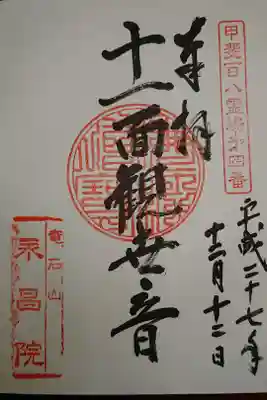 甲斐百八霊場第四番
奉拝
十一面観世音
平成二十七年
十二月十二日
龍石山
永昌院